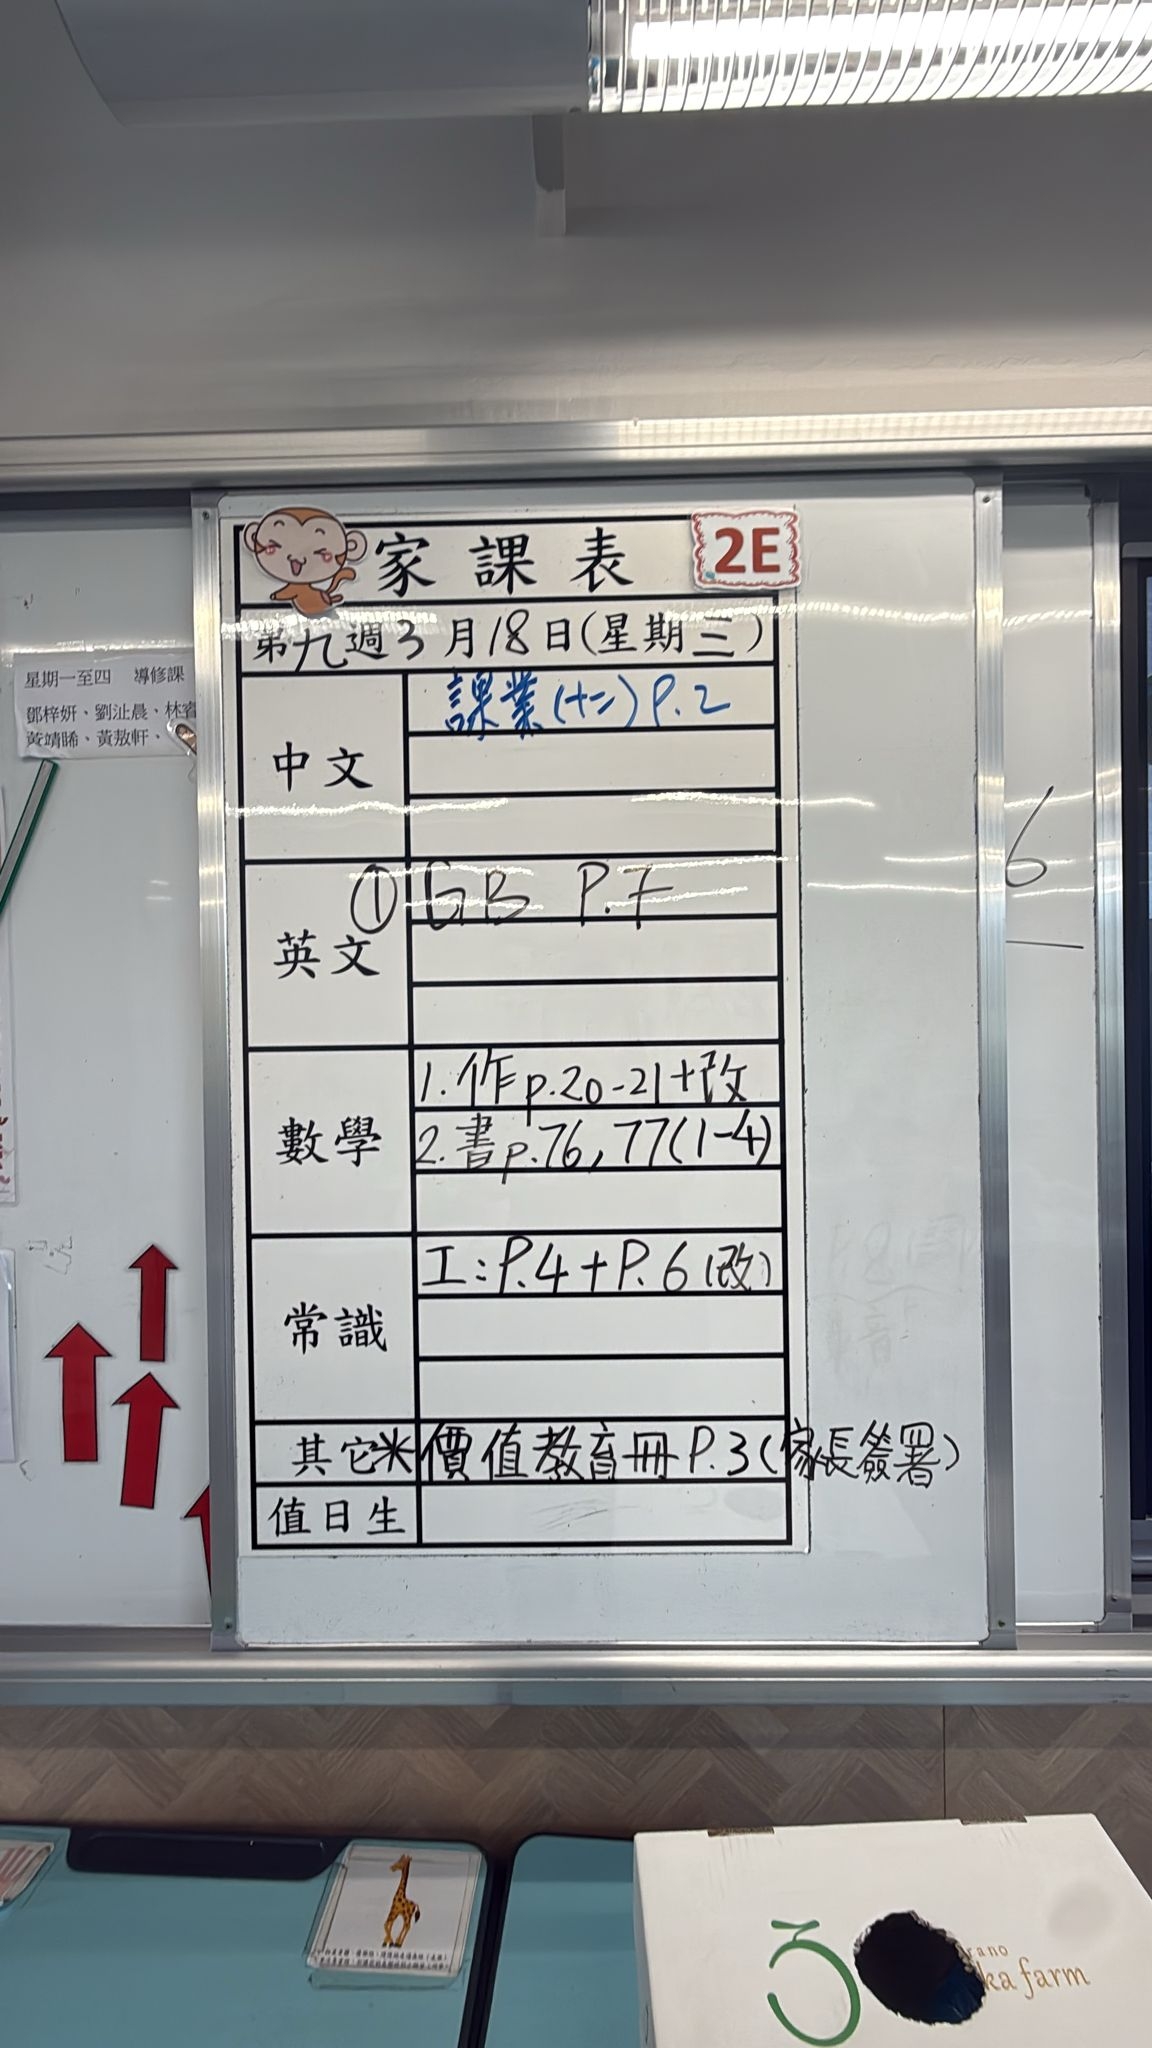 家課表
2E
第九週3月18日(星期三)
中文
課業(十二)P.2
英文
① GB P.7
數學
1.作p.20-21+改
2.書p.76,77(1-4)
常識
工:P.4+P.6(改)
其它
*價值教育冊P.3(家長簽署)
值日生
星期一至四 導修課
鄧梓妍、劉沚晨、林睿
黃靖睎、黃敖軒、
6
30
farm